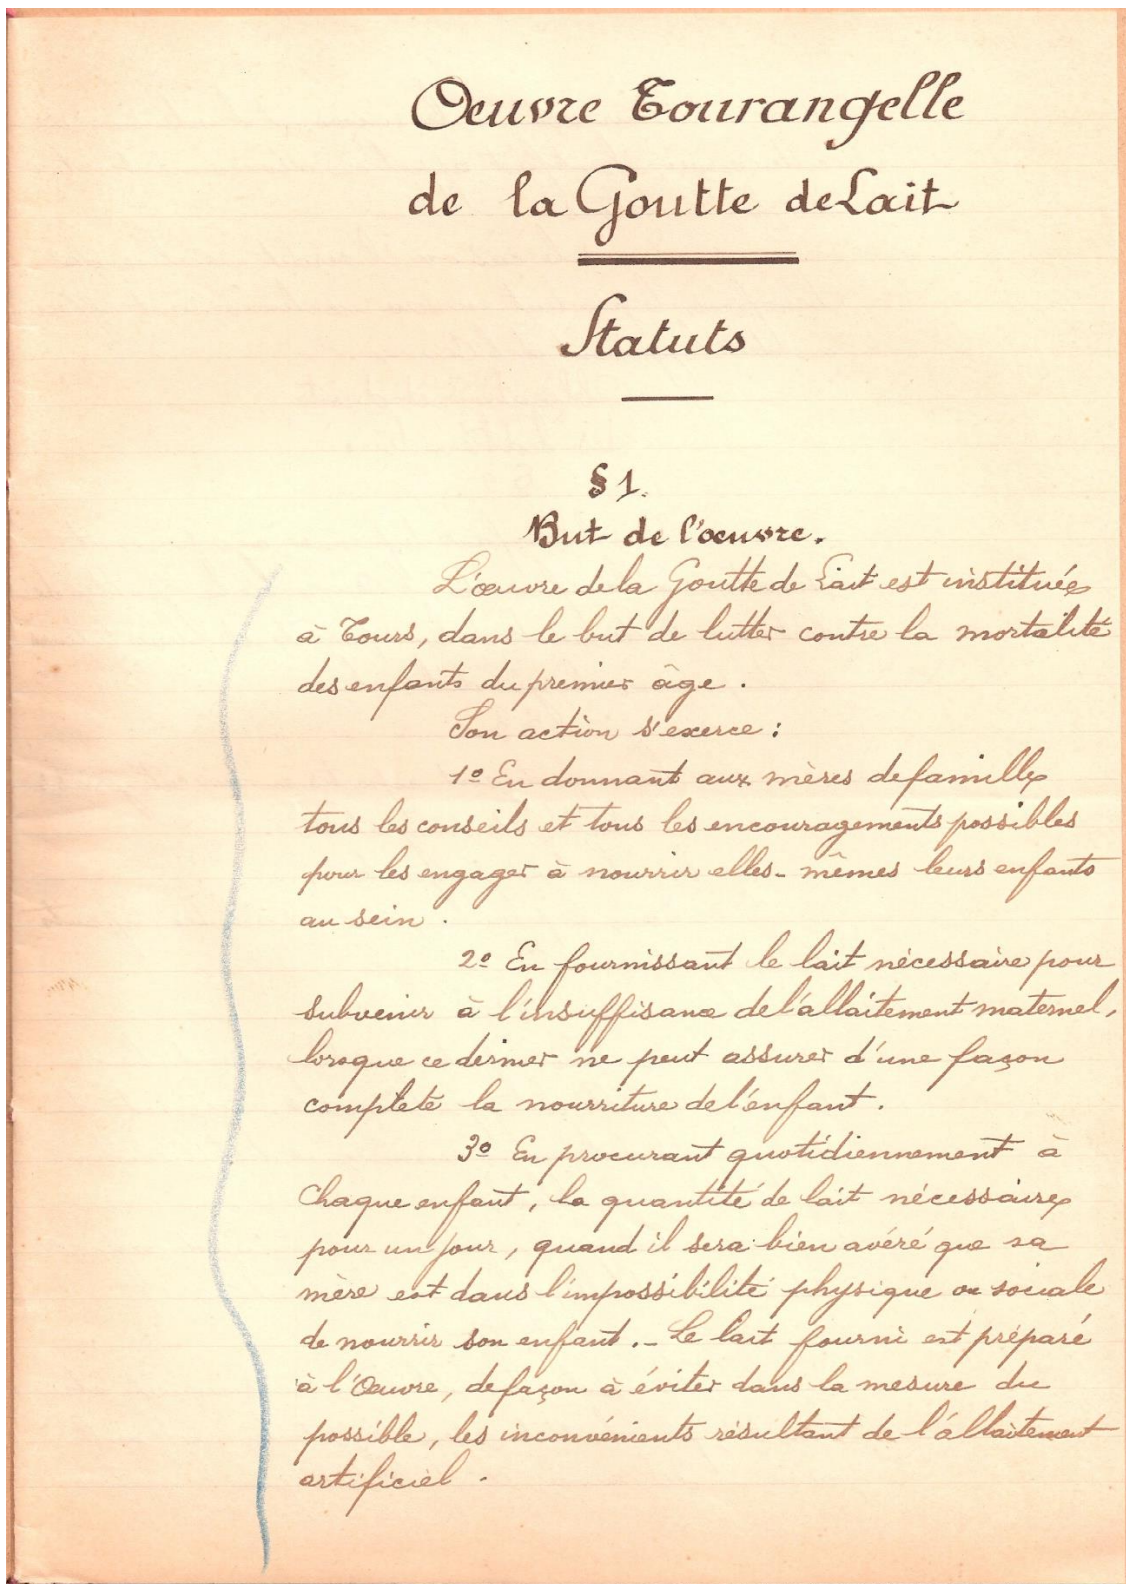 Oeuvre Tourangelle
de la Goutte de Lait
Statuts
§ 1.
But de l'œuvre.
L'œuvre de la Goutte de Lait est instituée
à Tours, dans le but de lutter contre la mortalité
des enfants du premier âge.
Son action s'exerce :
1º En donnant aux mères de famille
tous les conseils et tous les encouragements possibles
pour les engager à nourrir elles-mêmes leurs enfants
au sein.
2º En fournissant le lait nécessaire pour
subvenir à l'insuffisance de l'allaitement maternel,
lorsque ce dernier ne peut assurer d'une façon
complète la nourriture de l'enfant.
3º En procurant quotidiennement à
chaque enfant, la quantité de lait nécessaire
pour un jour, quand il sera bien avéré que sa
mère est dans l'impossibilité physique ou sociale
de nourrir son enfant. - Le lait fourni est préparé
à l'Œuvre, de façon à éviter dans la mesure du
possible, les inconvénients résultant de l'allaitement
artificiel.